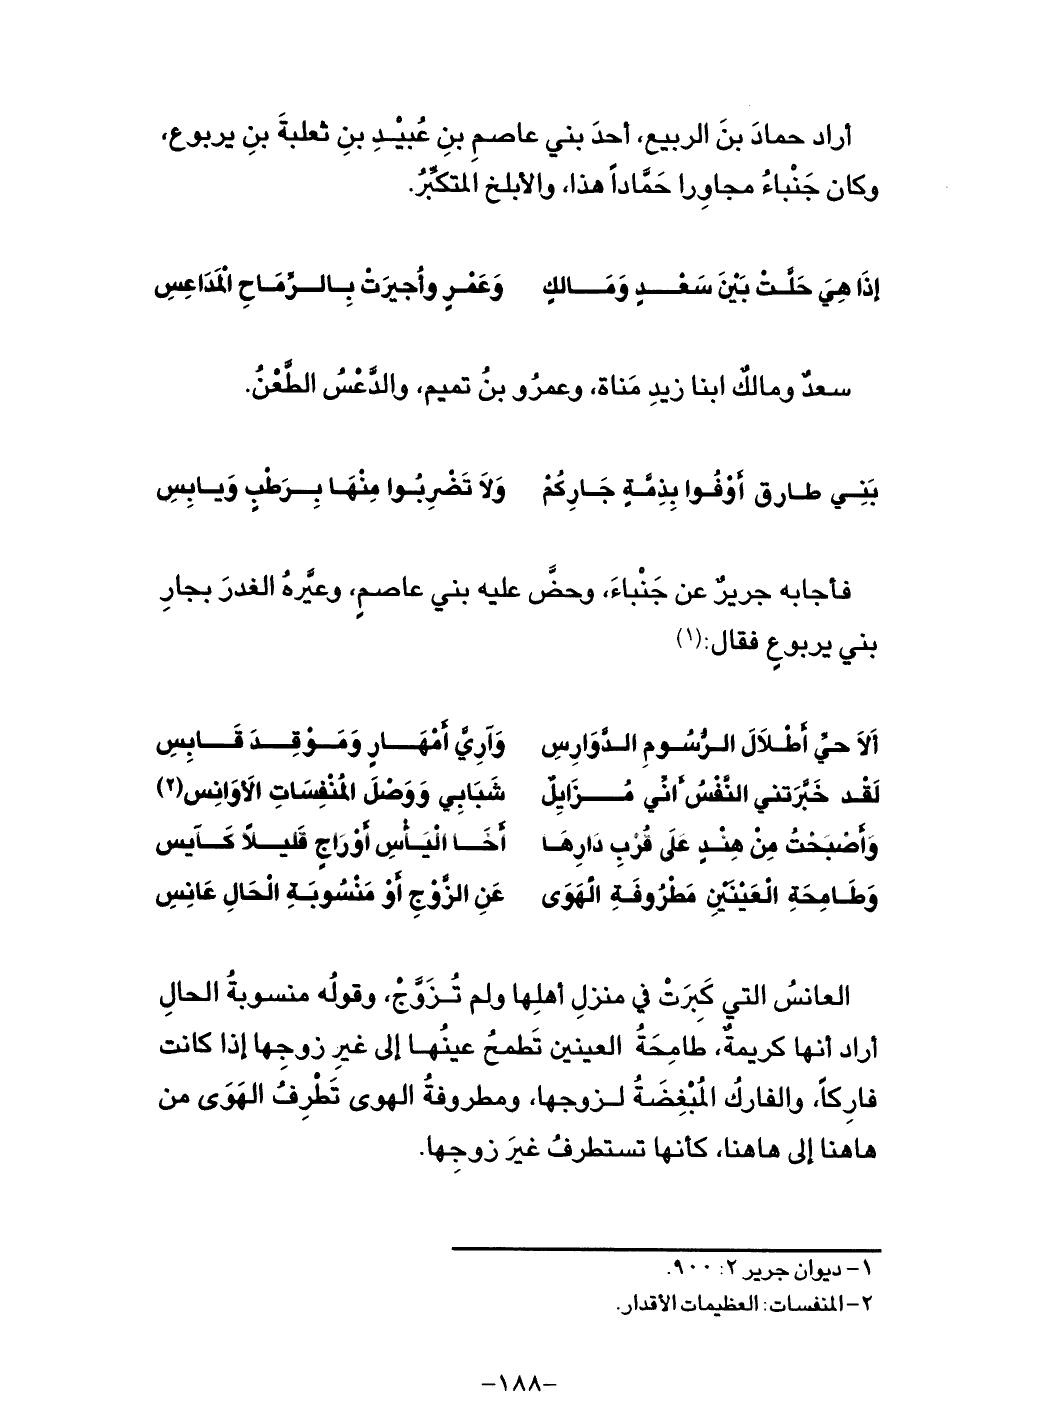 أراد حمادَ بنَ الربيع، أحدَ بني عاصمِ بنِ عُبيْدِ بنِ ثعلبةَ بنِ يربوع،
وكان جَنْباءُ مجاوِرا حَمَّاداً هذا، والأبلخ المتكبِّرُ.
إذَا هِيَ حَلَّتْ بَيْنَ سَعْدٍ وَمَالكٍ وَعَمْرٍ وأُجيرَتْ بِالرِّمَاحِ الْمَدَاعِسِ
سعدٌ ومالكٌ ابنا زيدِ مَناة، وعمرُو بنُ تميم، والدَّعْسُ الطَّعْنُ.
بَنِي طارق أَوْفُوا بِذِمَّةِ جَارِكُمْ وَلاَ تَضْرِبُوا مِنْهَا بِرَطْبٍ وَيابِسِ
فأجابه جريرٌ عن جَنْباءَ، وحضَّ عليه بني عاصمٍ، وعيَّرهُ الغدرَ بجارِ
بني يربوعٍ فقال:(١)
اَلاَ حيِّ أَطْلاَلَ الرُّسُومِ الدَّوَارِسِ وَآرِيَّ أَمْهَارٍ وَمَوْقِدَ قَابِسِ
لَقْد خَبَّرَتني النَّفْسُ أنِّي مُزَايِلٌ شَبَابِي وَوَصْلَ المُنْفِسَاتِ الأوَانِس(٢)
وَأَصْبَحْتُ مِنْ هِنْدٍ عَلَى قُرْبِ دَارِهَا أَخَا الْيَأْسِ أوْرَاجٍ قَليلاً كَآيس
وَطَامِحَةِ الْعَيْنَيْنِ مَطْرُوفَةِ الْهَوَى عَنِ الزَّوْجِ أَوْ مَنْسُوبَةِ الْحَالِ عَانِسِ
العانسُ التي كَبِرَتْ في منزلِ أهلِها ولم تُزَوَّجْ، وقولُه منسوبةُ الحالِ
أراد أنها كريمةٌ، طامِحَةُ العينين تَطمحُ عينُها إلى غيرِ زوجِها إذا كانت
فارِكاً، والفاركُ المُبْغِضَةُ لزوجها، ومطروفةُ الهوى تَطْرِفُ الهَوَى من
هاهنا إلى هاهنا، كأنها تستطرفُ غيرَ زوجِها.
١- ديوان جرير ٢: ٩٠٠.
٢- المنفسات: العظيمات الأقدار.
-١٨٨-